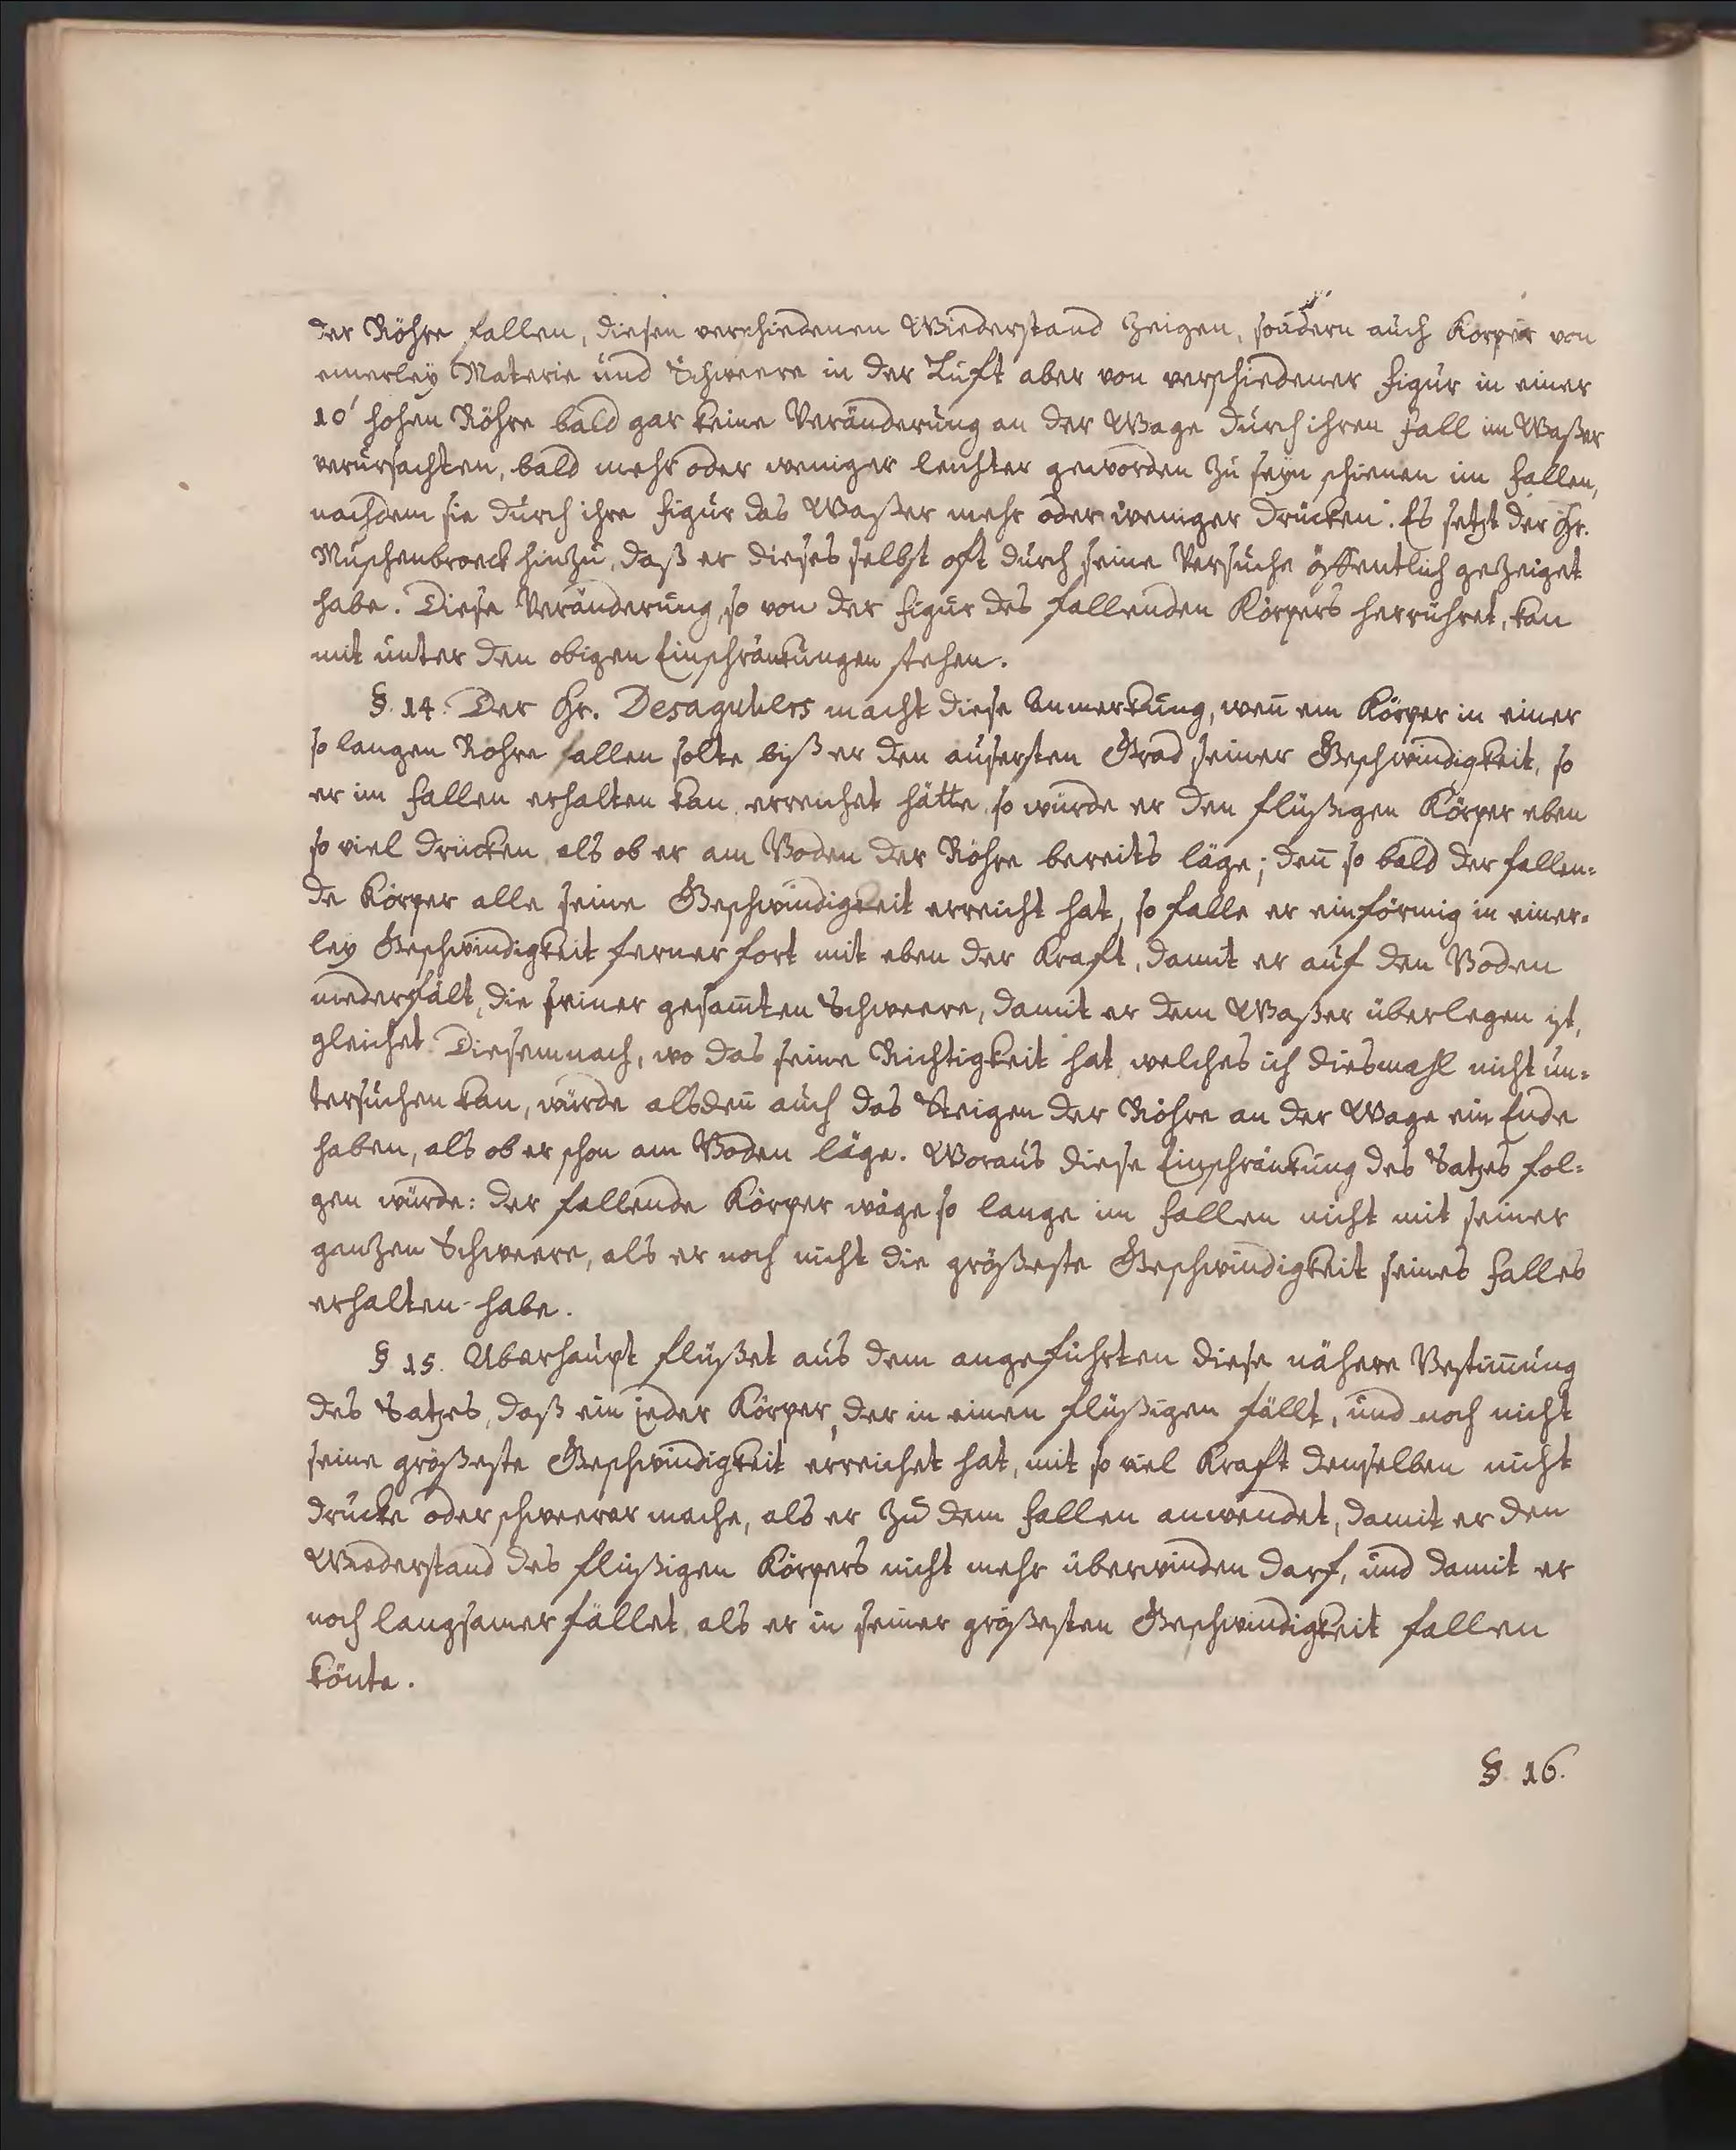 der Röhre fallen, diesen verschiedenen Wiederstand zeigen, sondern auch Körper von
einerley Materie und Schweere in der Luft aber von verschiedener Figur in einer
10' hohen Röhre bald gar keine Veränderung an der Wage durch ihren Fall im Waßer
verursachten, bald mehr oder weniger leichter geworden zu seyn schienen im Fallen,
nachdem sie durch ihre Figur das Waßer mehr oder weniger drücken. Es setzt der Hr.
Muschenbroeck hinzu, daß er dieses selbst oft durch seine Versuche öffentlich gezeiget
habe. Diese Veränderung, so von der Figur des fallenden Körpers herrühret, kan
mit unter den obigen Einschränkungen stehen.
§. 14. Der Hr. Desaguliers macht diese Anmerkung, weñ ein Körper in einer
so langen Röhre fallen solte, biß er den äusersten Grad seiner Geschwindigkeit, so
er im Fallen erhalten kan, erreichet hätte, so würde er den flüßigen Körper eben
so viel drücken, als ob er am Boden der Röhre bereits läge; deñ so bald der fallen=
de Körper alle seine Geschwindigkeit erreicht hat, so falle er einförmig in einer=
ley Geschwindigkeit ferner fort mit eben der Kraft, damit er auf den Boden
niederfält, die seiner gesam̃ten Schweere, damit er dem Waßer überlegen ist,
gleichet. Diesemnach, wo das seine Richtigkeit hat, welches ich diesmahl nicht un=
tersuchen kan, würde alsdeñ auch das Steigen der Röhre an der Wage ein Ende
haben, als ob er schon am Boden läge. Woraus diese Einschränkung des Satzes fol=
gen würde: der fallende Körper wäge so lange im Fallen nicht mit seiner
ganzen Schweere, als er noch nicht die größeste Geschwindigkeit seines Falles
erhalten habe.
§. 15. Überhaupt flüßet aus dem angeführten diese nähere Bestim̃ung
des Satzes, daß ein jeder Körper, der in einen flüßigen fällt, und noch nicht
seine größeste Geschwindigkeit erreichet hat, mit so viel Kraft denselben nicht
drücke oder schweerer mache, als er zu dem Fallen anwendet, damit er den
Wiederstand des flüßigen Körpers nicht mehr überwinden darf, und damit er
noch langsamer fället, als er in seiner größesten Geschwindigkeit fallen
könte.
§. 16.